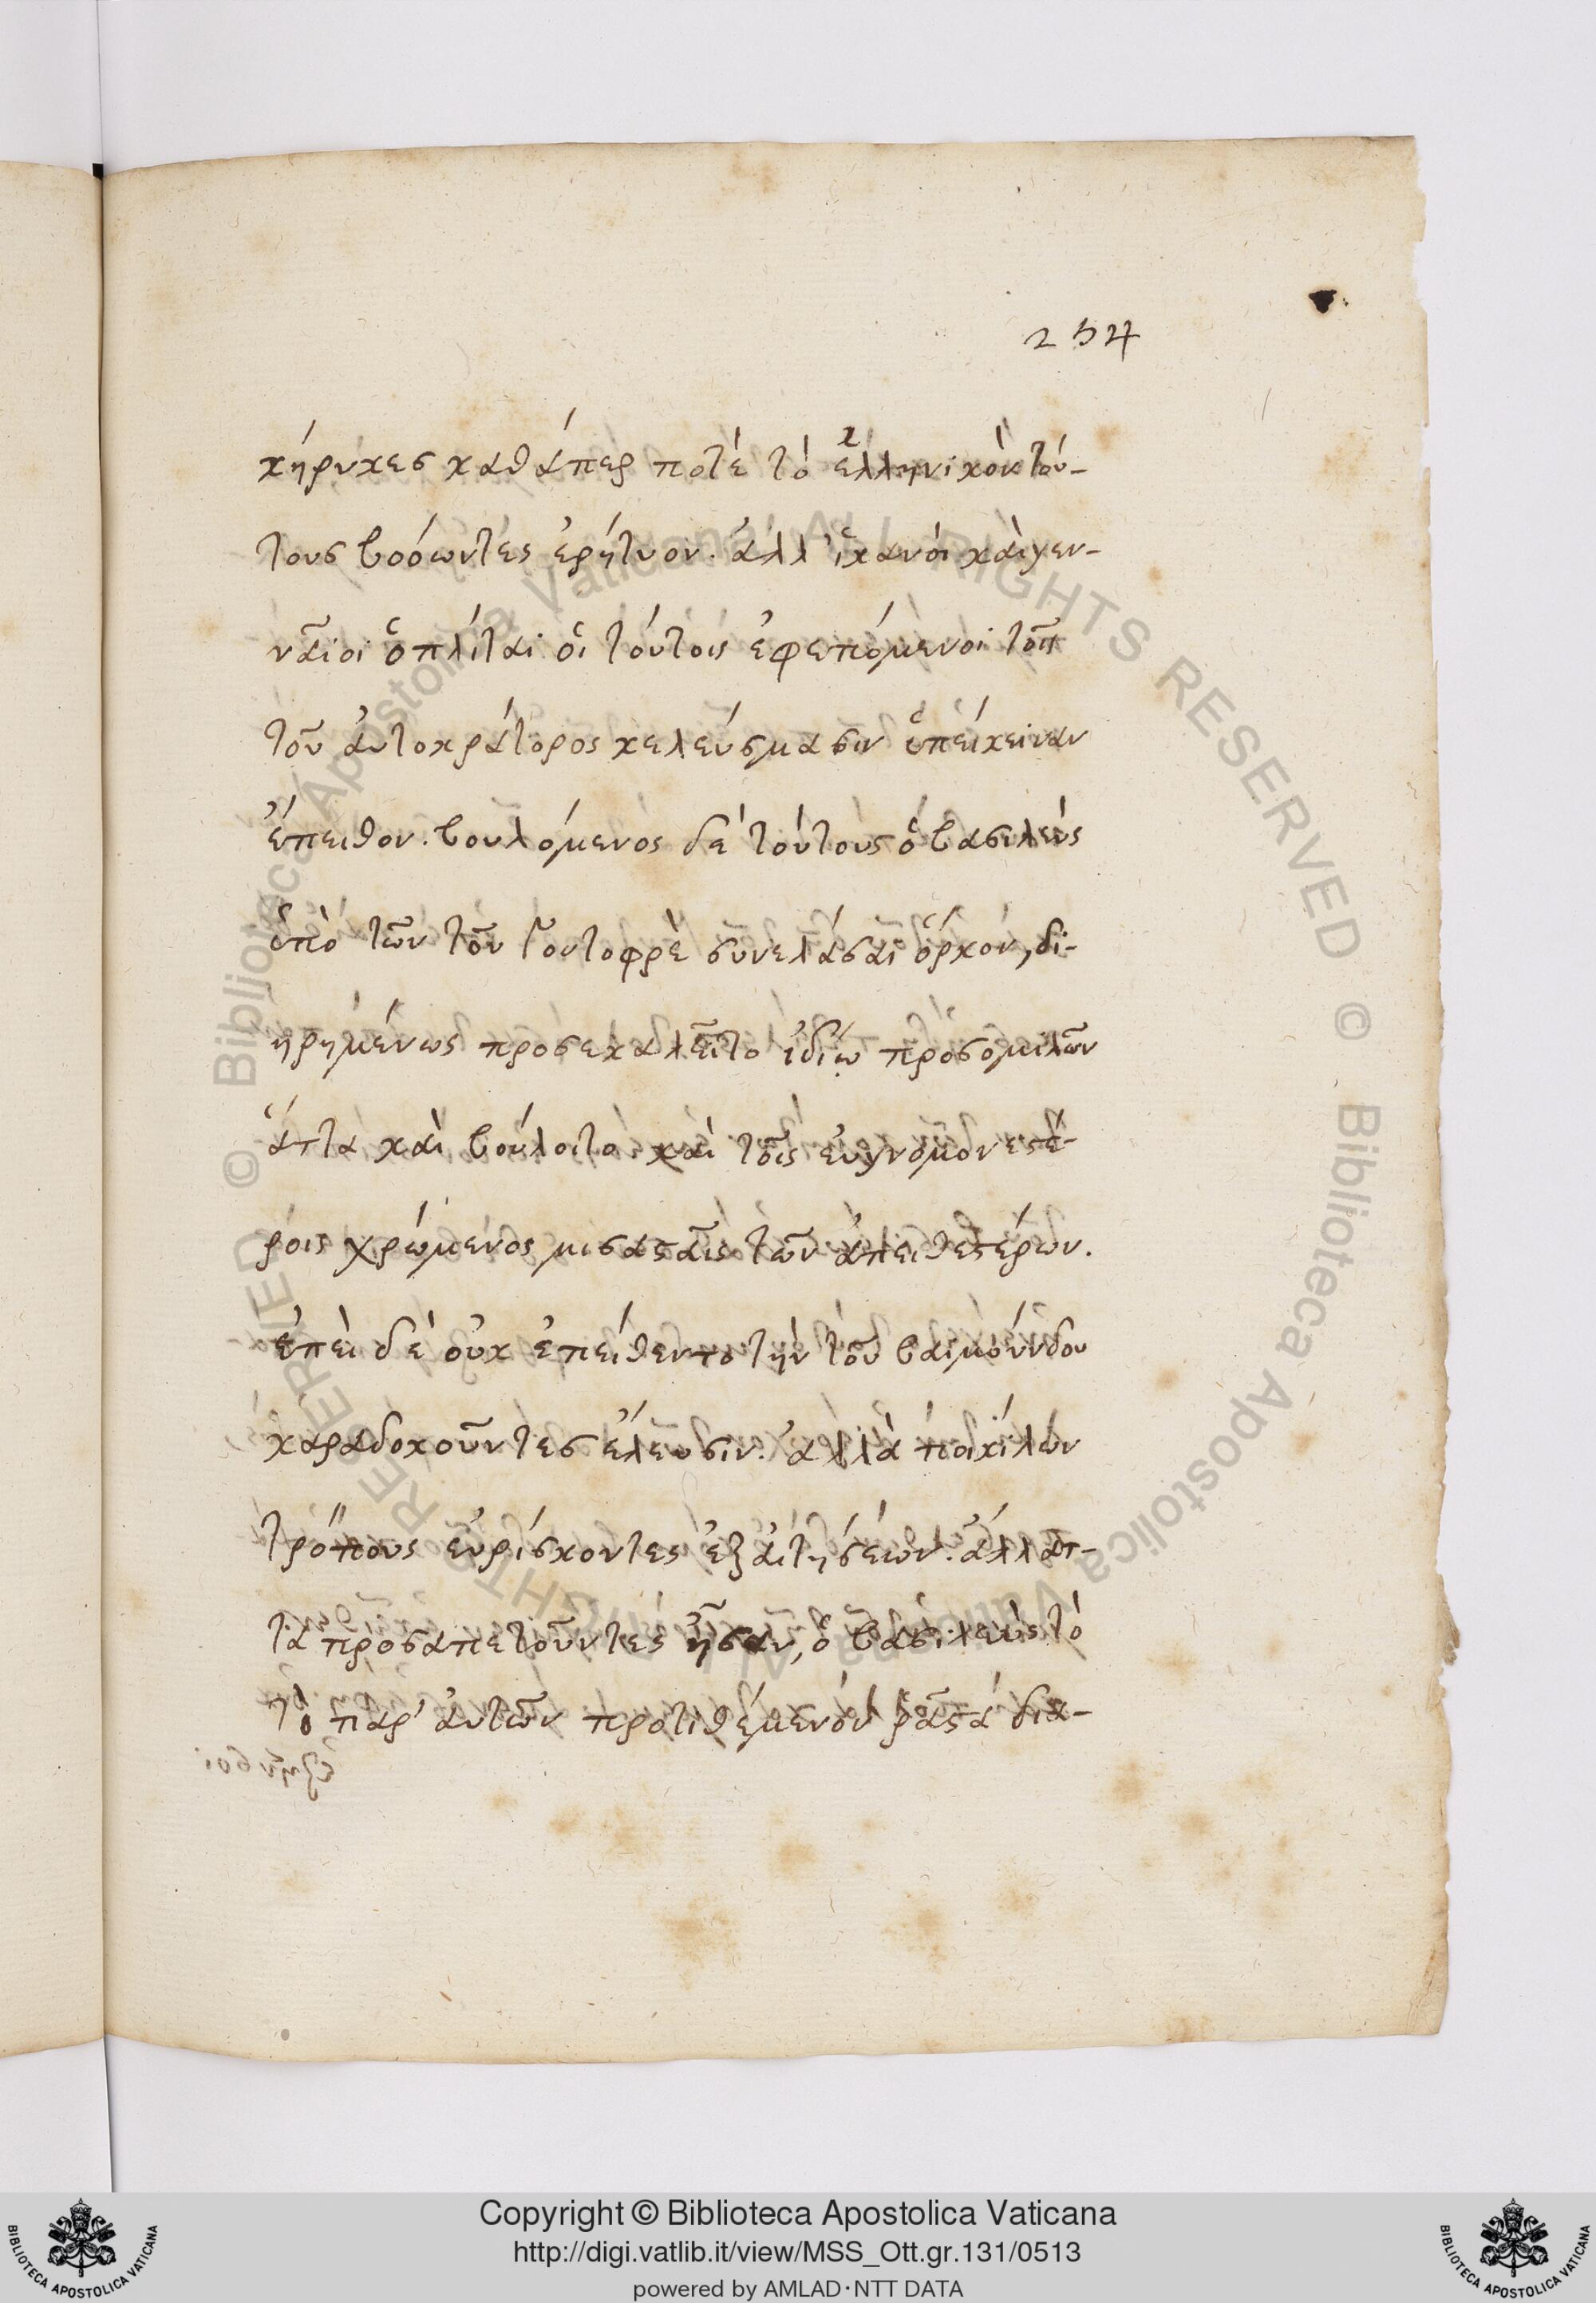 254
κήρυκες καθάπερ ποτὲ τὸ ἑλληνικὸν τού-
τους βοόωντες ἐρήτυον. ἀλλ' ἱκανοὶ καὶ γεν-
ναῖοι ὁπλῖται οἱ τούτοις ἐφεπόμενοι τοῖς
τοῦ αὐτοκράτορος κελεύσμασιν ὑπείκειν ἂν
ἔπειθον. βουλόμενος δὲ τούτους ὁ βασιλεὺς
ὑπὸ τὸν τοῦ Γοντοφρὲ συνελάσαι ὅρκον, δι-
ηρημένως προσεκαλεῖτο ἰδίῳ προσομιλῶν
ἅττα καὶ βούλοιτο καὶ τοῖς εὐγνομονεστέ-
ροις χρώμενος μισασταῖς τῶν ἀπειθεστέρων.
ἐπεὶ δὲ οὐκ ἐπείθεντο τὴν τοῦ βαιμούνδου
καραδοκοῦντες ἔλευσιν. ἀλλὰ ποικίλων
τρόπους εὑρίσκοντες ἐξαιτήσεων. ἀλλ' ἄτ-
τα προσαπετοῦντες ἦσαν, ὁ βασιλεὺς τὸ
τὸ παρ' αὐτῶν προτιθέμενον ῥᾷστα δια-
Copyright © Biblioteca Apostolica Vaticana
http://digi.vatlib.it/view/MSS_Ott.gr.131/0513
powered by AMLAD·NTT DATA
BIBLIOTECA APOSTOLICA VATICANA
BIBLIOTECA APOSTOLICA VATICANA
© Biblioteca Apostolica Vaticana ALL RIGHTS RESERVED © Biblioteca Apostolica Vaticana ALL RIGHTS RESERVED